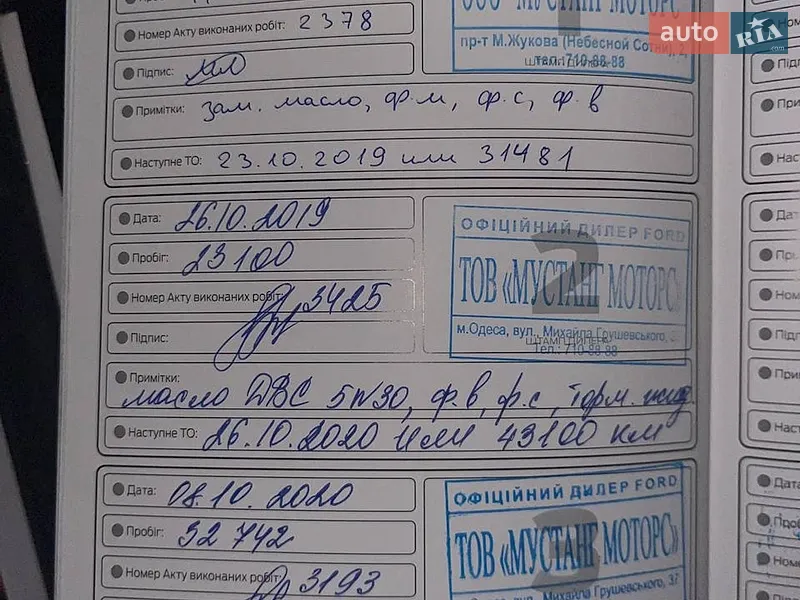 ТОВ «МУСТАНГ МОТОРС»
auto RIA.com
Номер Акту виконаних робіт: 2378
пр-т М.Жукова (Небесной Сотни), 2,
ШТАМП ДИЛЕРА
тел. 710-88-88
Підпис:
Примітки: зам. масло, ф.м, ф.с, ф.в
Наступне ТО: 23.10.2019 или 31481
Дата: 26.10.2019
ОФІЦІЙНИЙ ДИЛЕР FORD
Пробіг: 23100
2
ТОВ «МУСТАНГ МОТОРС»
Номер Акту виконаних робіт: 3425
м.Одеса, вул. Михайла Грушевського,
Підпис:
ШТАМП ДИЛЕРА
Тел.: 710-88-88
Примітки:
масло ДВС 5W30, ф.в, ф.с, торм. жид
Наступне ТО: 26.10.2020 или 43100 км
Дата: 08.10.2020
ОФІЦІЙНИЙ ДИЛЕР FORD
Пробіг: 32742
3
ТОВ «МУСТАНГ МОТОРС»
Номер Акту виконаних робіт: 3193
м.Одеса, вул. Михайла Грушевського, 37
Дата